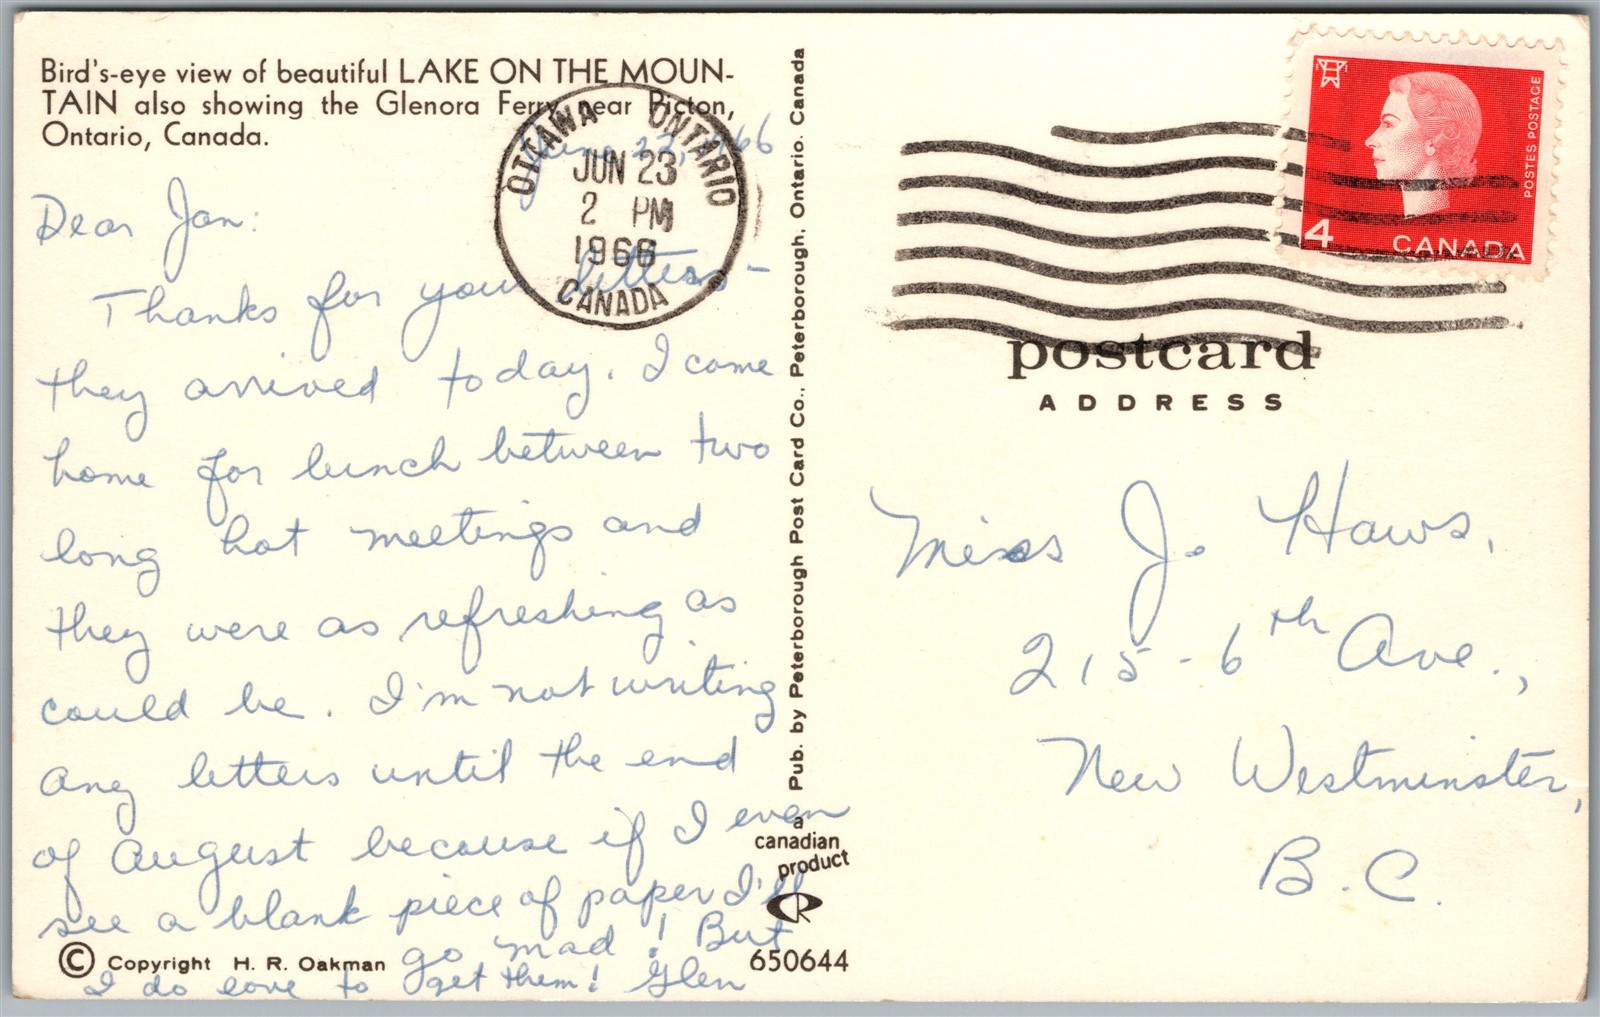 Bird's-eye view of beautiful LAKE ON THE MOUN-
TAIN also showing the Glenora Ferry near Picton,
Ontario, Canada.
June 23, 1966
OTTAWA ONTARIO
JUN 23
2 PM
1966
CANADA
Dear Jan:
Thanks for your letters -
they arrived today. I came
home for lunch between two
long hot meetings and
they were as refreshing as
could be. I'm not writing
any letters until the end
of August because if I even
see a blank piece of paper I'll
go mad! But
I do love to get them! Glen
© Copyright H. R. Oakman
Pub. by Peterborough Post Card Co., Peterborough, Ontario. Canada
a
canadian
product
CR
650644
POSTES POSTAGE
4 CANADA
postcard
ADDRESS
Miss J. Haws,
215-6th Ave.,
New Westminster,
B.C.